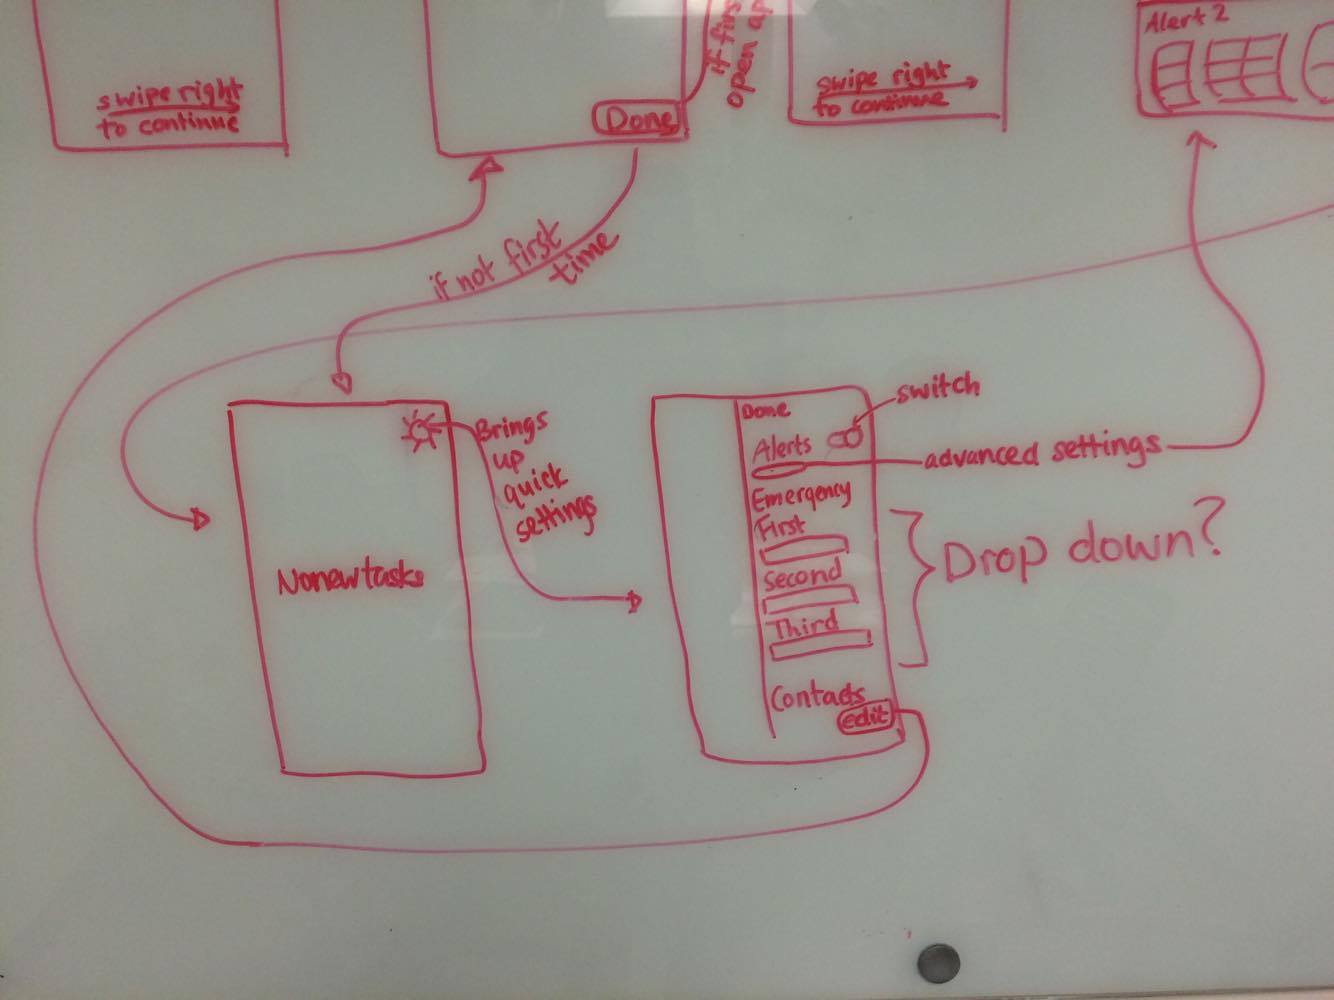 swipe right
to continue
Done
if firs
open ap
swipe right
to continue
Alert 2
if not first
time
No new tasks
Brings
up
quick
settings
Done
switch
Alerts
advanced settings
Emergency
First
Second
Third
Drop down?
Contacts
edit